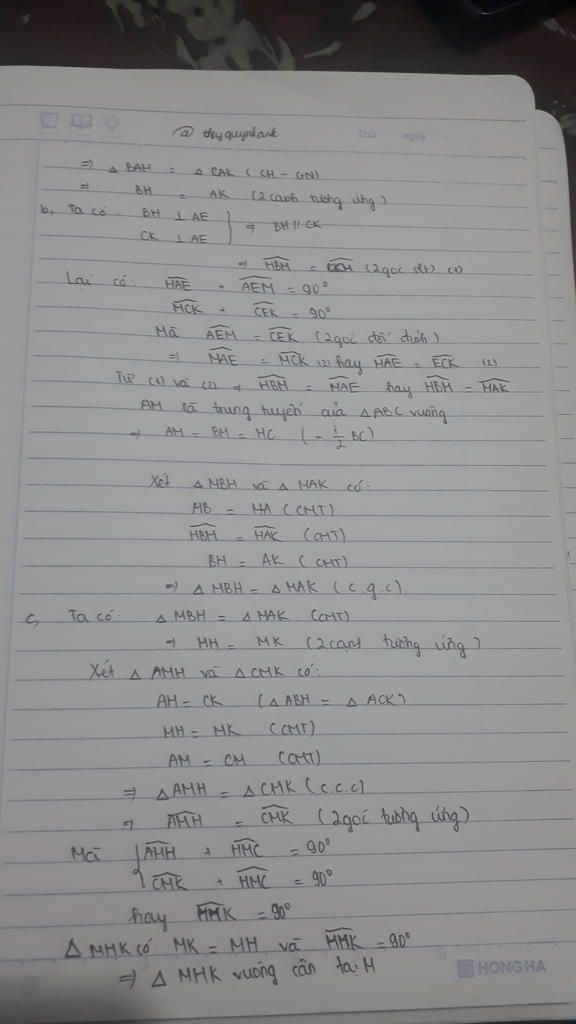 @ thuyquynhank
Thứ ngày
=> △ BAH = △ CAK ( CH - GN)
=> BH = AK (2 cạnh tương ứng)
b, Ta có: BH ⊥ AE
CK ⊥ AE } => BH // CK
=> HBM = ECM (2 góc slt) (1)
Lại có: MAE + AEM = 90°
MCK + CEK = 90°
Mà AEM = CEK (2 góc đối đỉnh)
=> MAE = MCK (2) hay MAE = ECK (2)
Từ (1) và (2) => HBM = MAE hay HBM = MAK
AM là trung tuyến của △ABC vuông
=> AM = BM = MC ( = 1/2 BC)
Xét △ MBH và △ MAK có:
MB = MA (CMT)
HBM = MAK (CMT)
BH = AK (CMT)
=> △ MBH = △ MAK (c.g.c)
c, Ta có: △ MBH = △ MAK (CMT)
=> MH = MK (2 cạnh tương ứng)
Xét △ AMH và △ CMK có:
AH = CK (△ ABH = △ ACK)
MH = MK (CMT)
AM = CM (CMT)
=> △AMH = △CMK (c.c.c)
=> AMH = CMK (2 góc tương ứng)
Mà { AMH + HMC = 90°
CMK + HMC = 90°
hay HMK = 90°
△ MHK có MK = MH và HMK = 90°
=> △ MHK vuông cân tại M
HONG HA